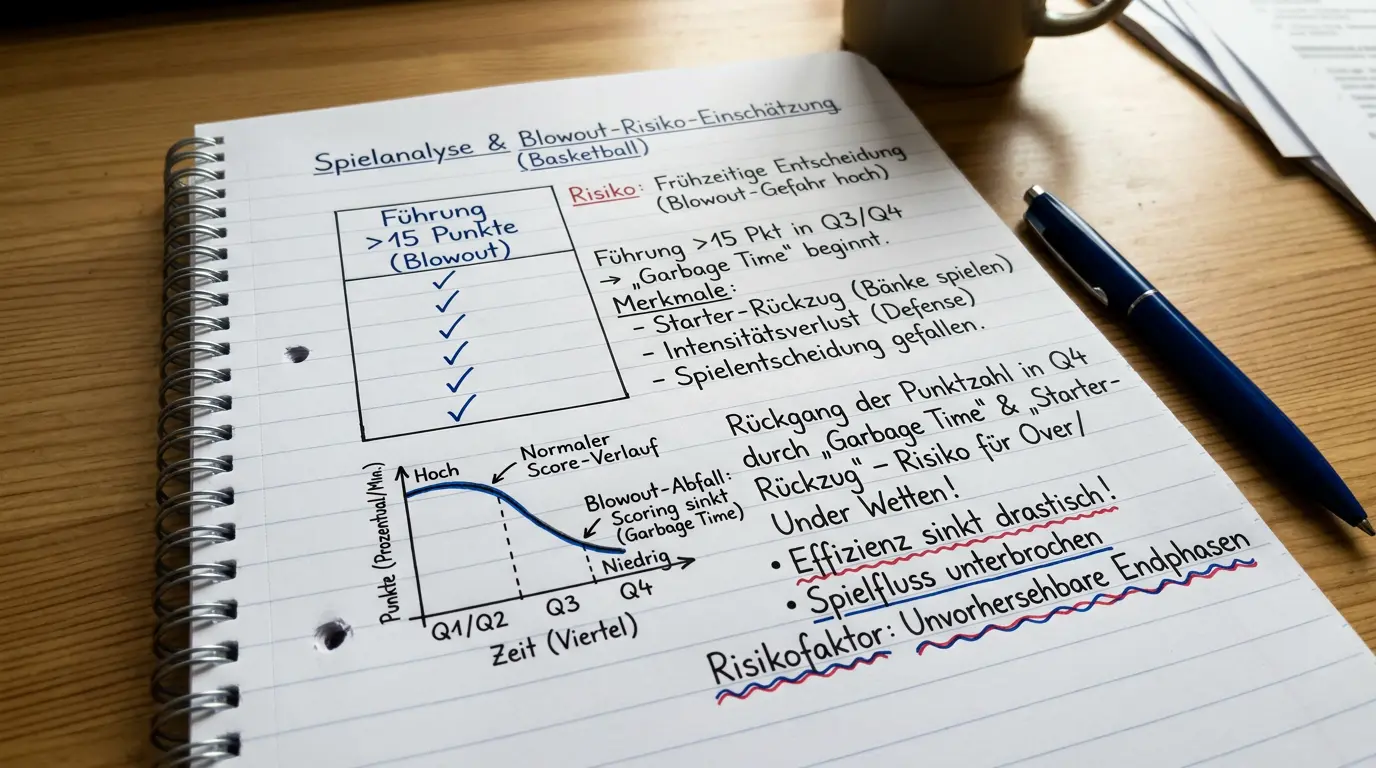 Spielanalyse & Blowout-Risiko-Einschätzung
(Basketball)
Führung
>15 Punkte
(Blowout)
✓
✓
✓
✓
✓
✓
Risiko: Frühzeitige Entscheidung
(Blowout-Gefahr hoch)
Führung >15 Pkt in Q3/Q4
→ „Garbage Time" beginnt.
Merkmale:
- Starter-Rückzug (Bänke spielen)
- Intensitätsverlust (Defense)
- Spielentscheidung gefallen.
Punkte (Prozentual/Min.)
Hoch
Normaler
Score-Verlauf
Blowout-Abfall:
Scoring sinkt
(Garbage Time)
Niedrig
Q1/Q2
Q3
Q4
Zeit (Viertel)
Rückgang der Punktzahl in Q4
durch „Garbage Time" & „Starter-
Rückzug" – Risiko für Over/
Under Wetten!
• Effizienz sinkt drastisch!
• Spielfluss unterbrochen
Risikofaktor: Unvorhersehbare Endphasen